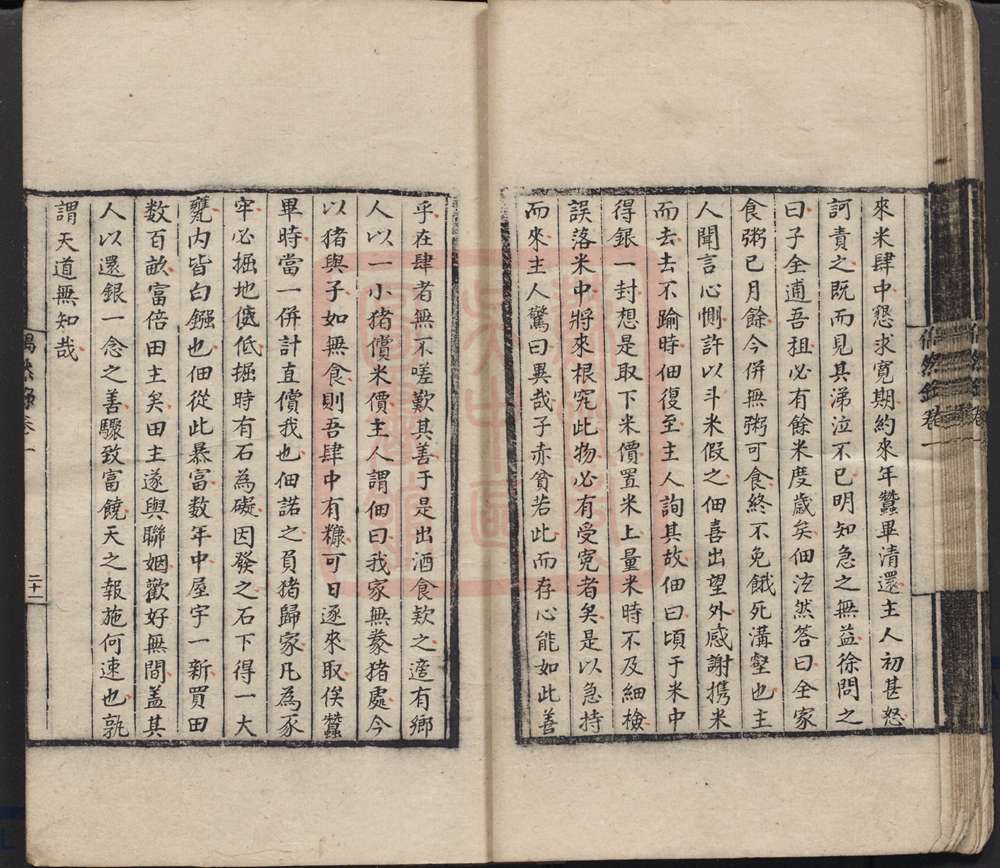 來米肆中懇求寬期約來年蠶畢清還主人初甚怒
訶責之既而見其涕泣不已明知急之無益徐問之
曰子全逋吾租必有餘米度歲矣佃泫然答曰全家
食粥已月餘今併無粥可食終不免餓死溝壑也主
人聞言心惻許以斗米假之佃喜出望外感謝携米
而去去不踰時佃復至主人詢其故佃曰頃于米中
得銀一封想是取下米價置米上量米時不及細檢
誤落米中將來根究此物必有受寃者矣是以急持
而來主人驚曰異哉子赤貧若此而存心能如此善
乎在肆者無不嗟歎其善于是出酒食欵之適有鄉
人以一小猪償米價主人謂佃曰我家無豢猪處今
以猪與子如無食則吾肆中有糠可日逐來取俟蠶
畢時當一併計直償我也佃諾之負猪歸家凡為豕
牢必掘地低低掘時有石為礙因發之石下得一大
甕內皆白鏹也佃從此暴富数年中屋宇一新買田
数百畝富倍田主矣田主遂與聯姻歡好無間盖其
人以還銀一念之善驟致富饒天之報施何速也孰
謂天道無知哉
偶然錄卷一
二十一